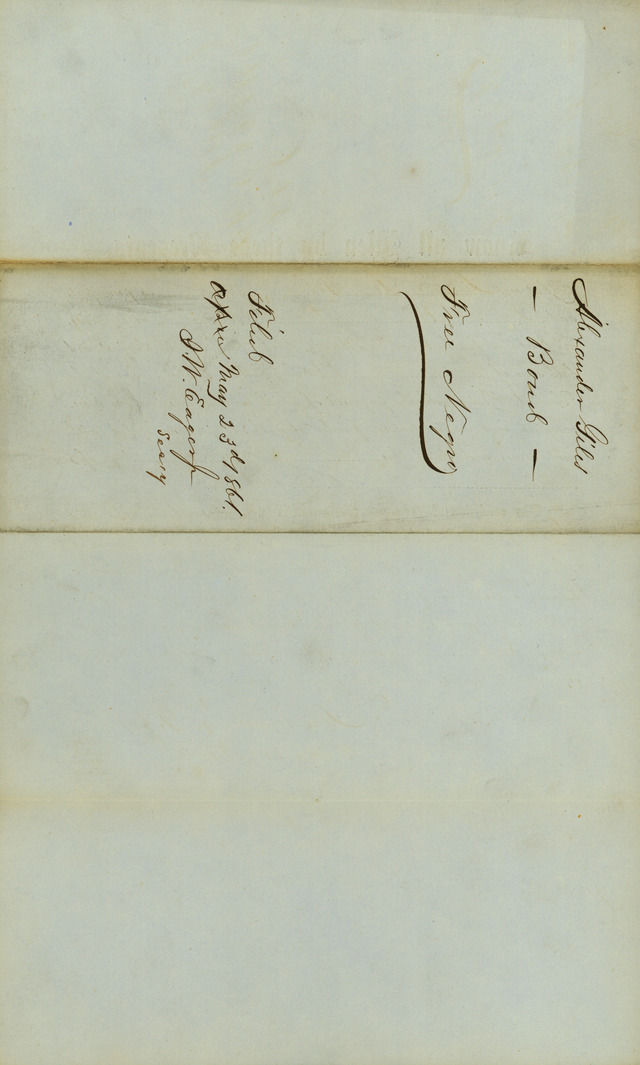 Alexander Giles
— Bond —
Free Negro
Filed
May 23d 1861.
J. W. Eager Jr
Secry